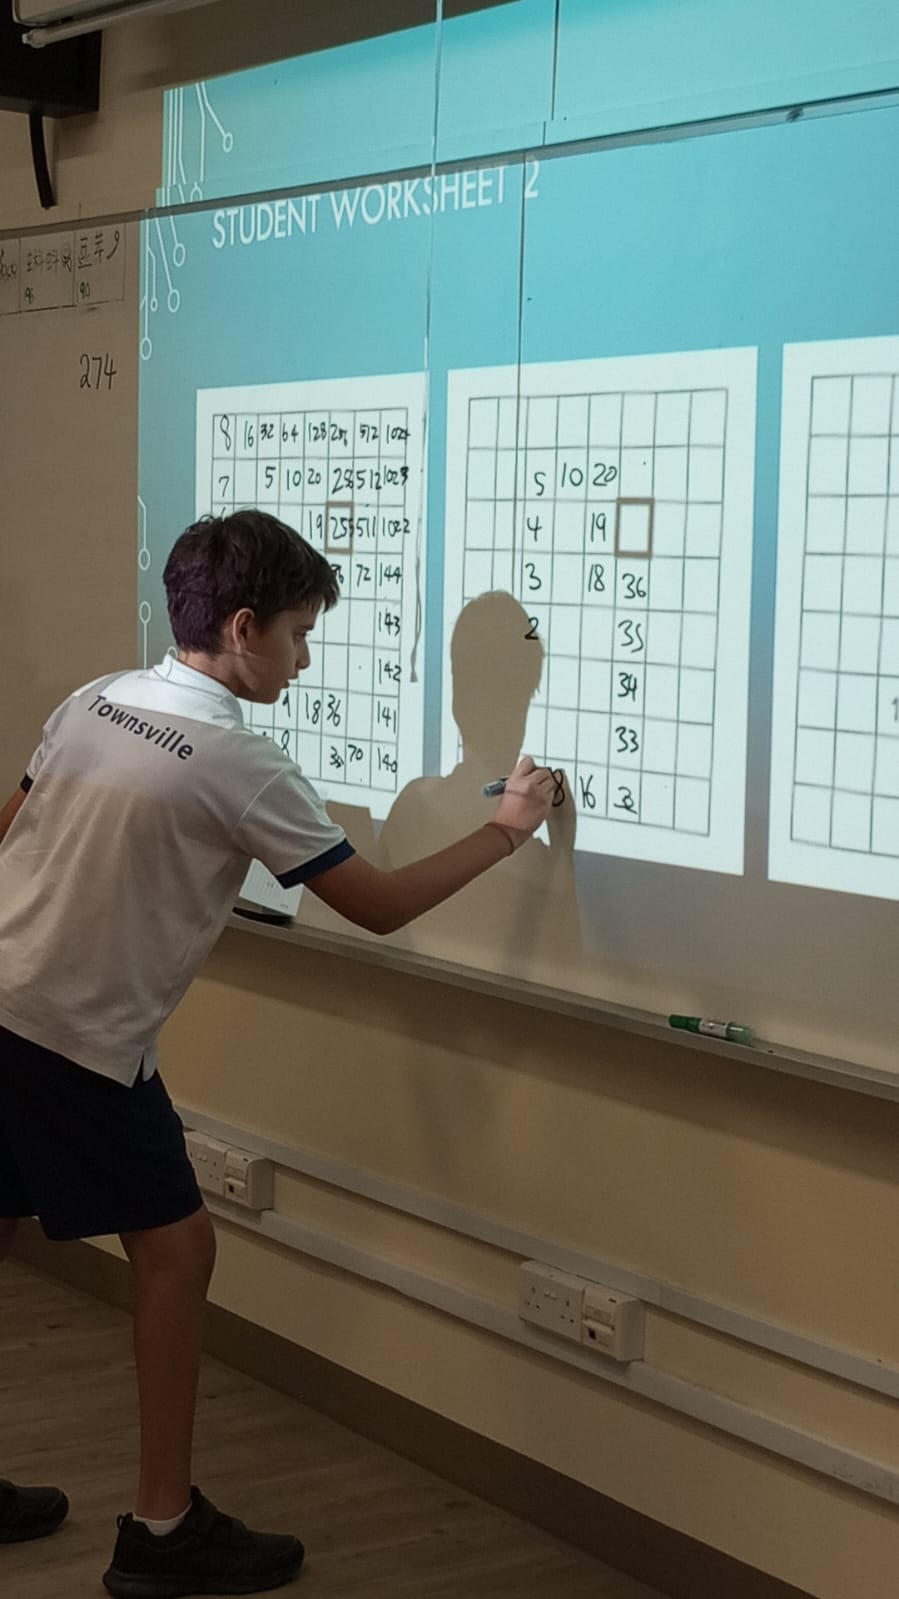 STUDENT WORKSHEET 2
96 90
274
8 16 32 64 128 256 512 1024
7 5 10 20 256 512 1023
19 255 511 1022
72 144
143
142
9 18 36 141
8 35 70 140
5 10 20
4 19
3 18 36
2 35
34
33
8 16 32
Townsville